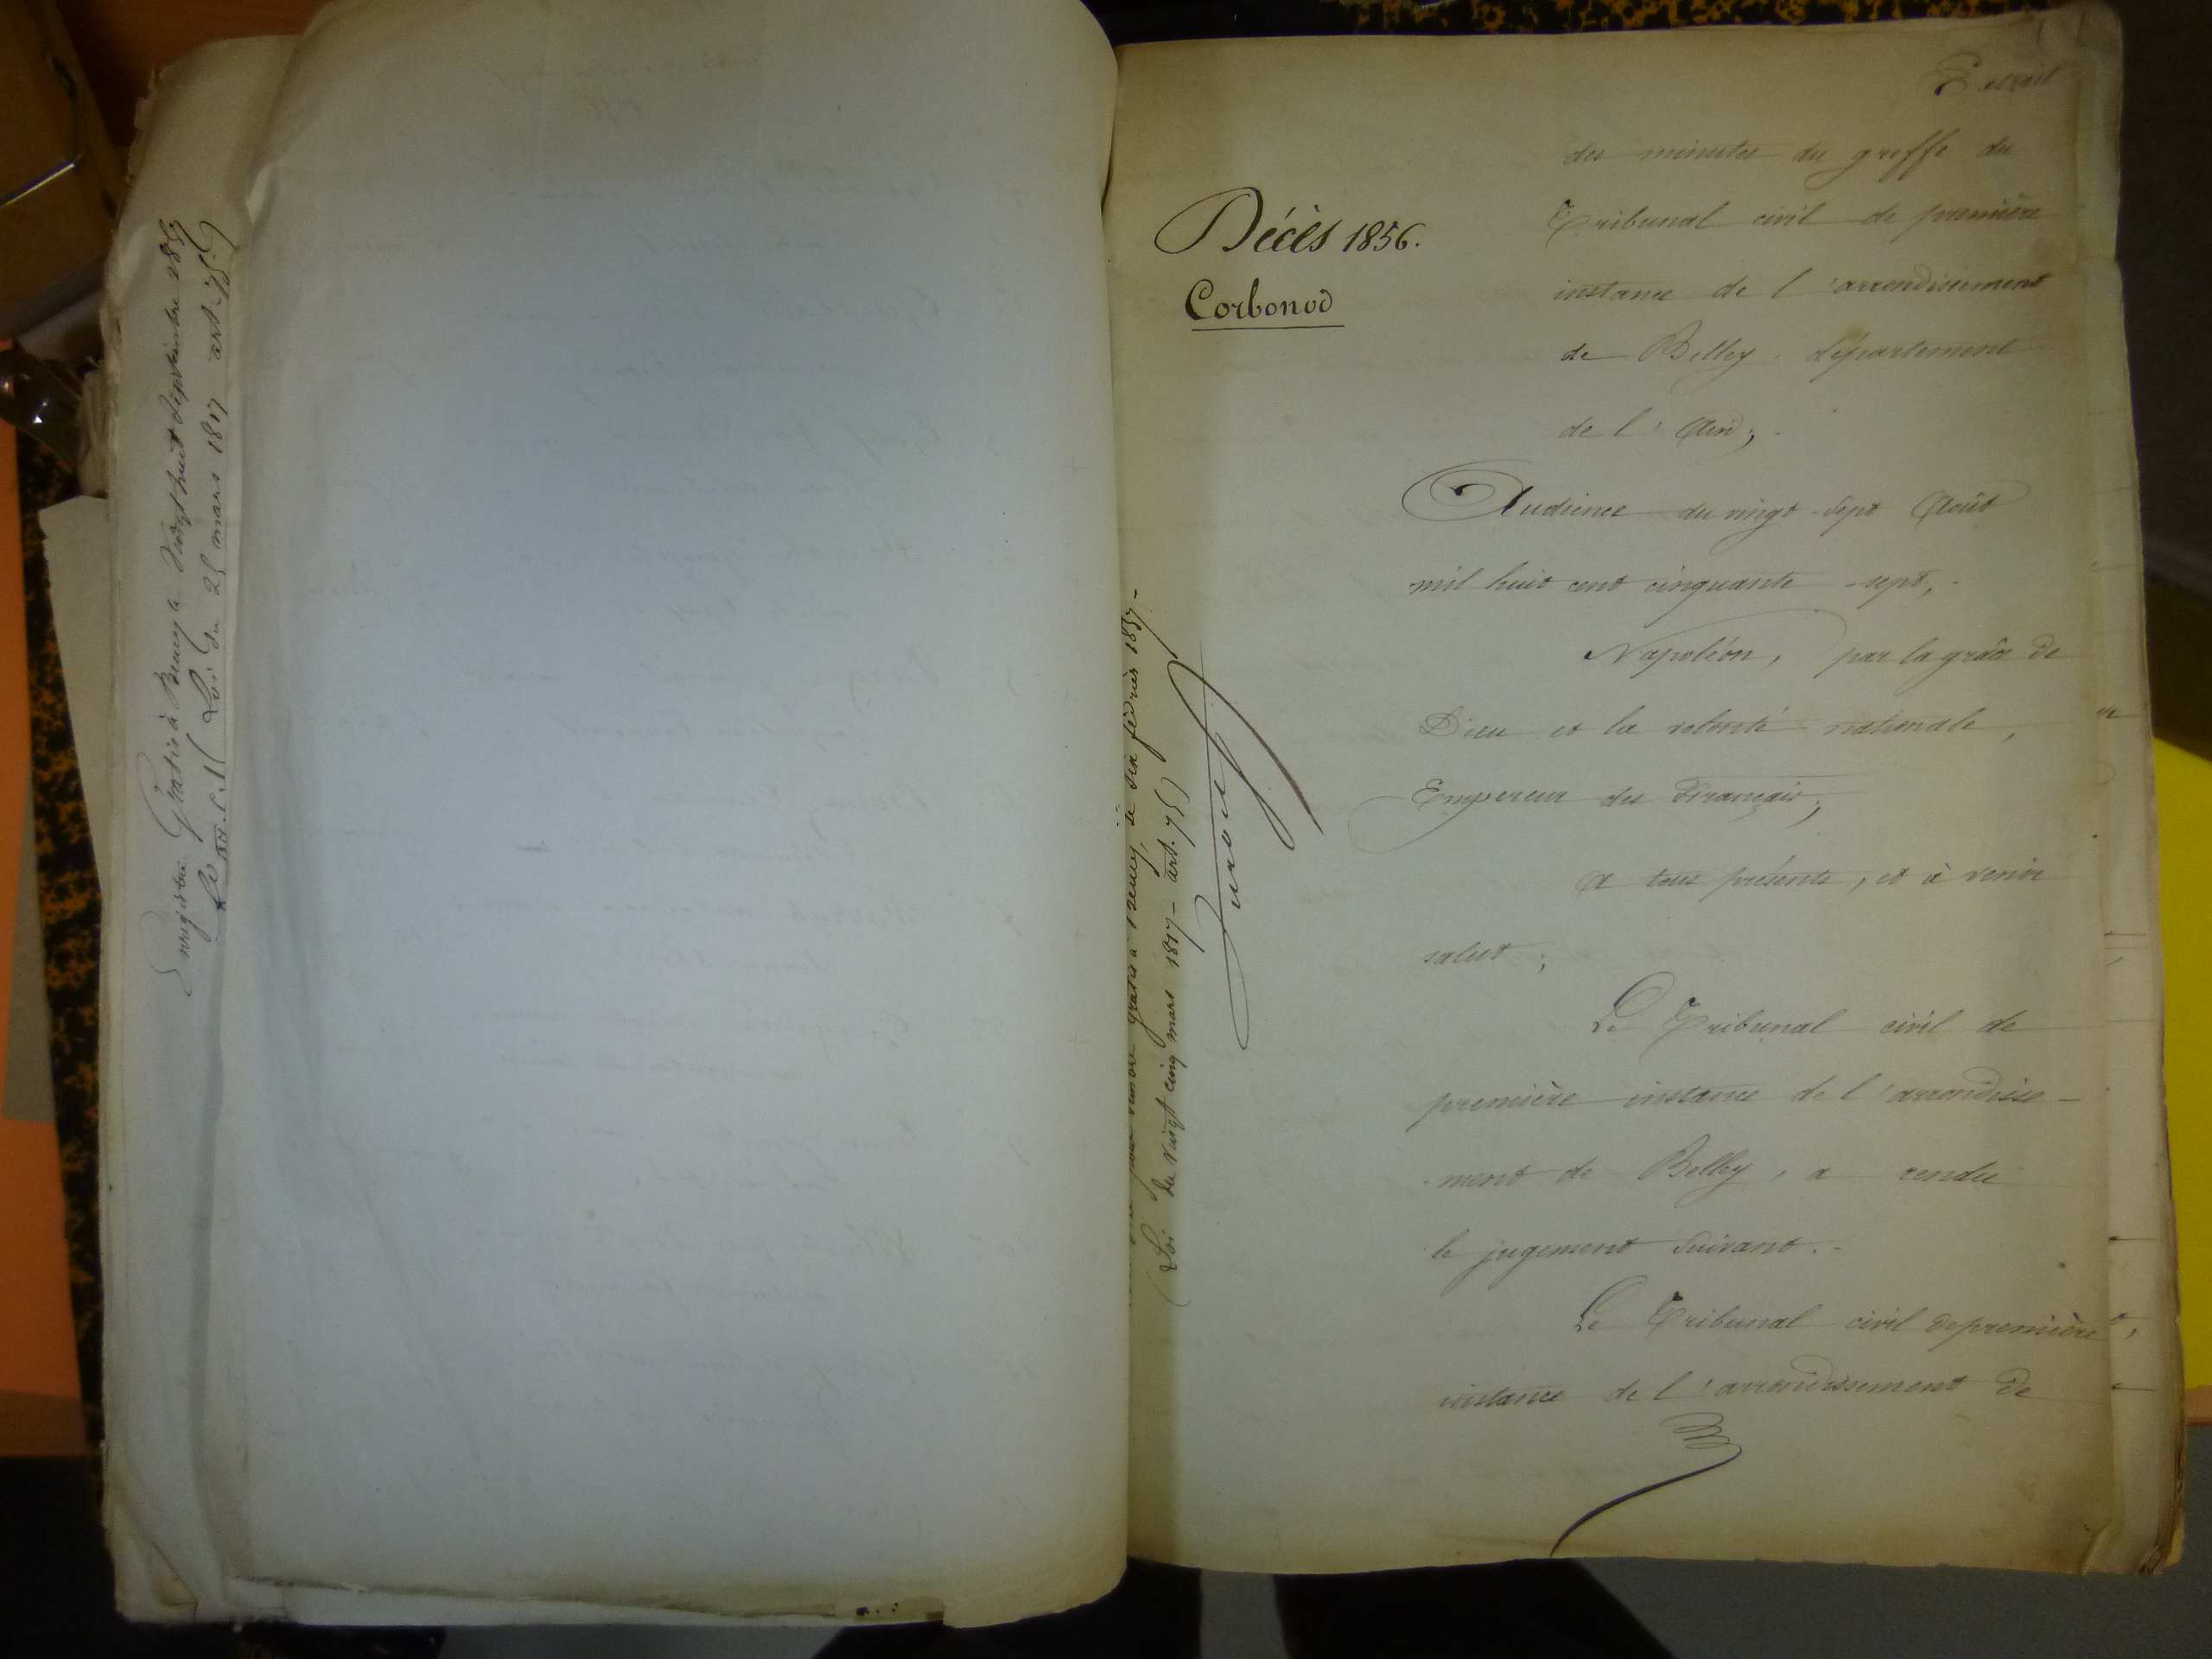 Enregistré Gratis à Seney le Vingt huit Septembre 1857
(Loi du 25 mars 1817 art. 75)
Décès 1856.
Corbonod
gratis à Seney, le dix février 1857 -
(Loi du vingt cinq mars 1817 - art. 75)
Extrait
des minutes du greffe du
Tribunal civil de première
instance de l'arrondissement
de Belley département
de l'Ain ;
Audience du vingt-sept Août
mil huit cent cinquante-sept,
Napoléon, par la grâce de
Dieu et la volonté nationale,
Empereur des Français,
a tous présents, et à venir
salut ;
Le Tribunal civil de
première instance de l'arrondisse-
ment de Belley, a rendu
le jugement suivant.
Le Tribunal civil de première
instance de l'arrondissement de